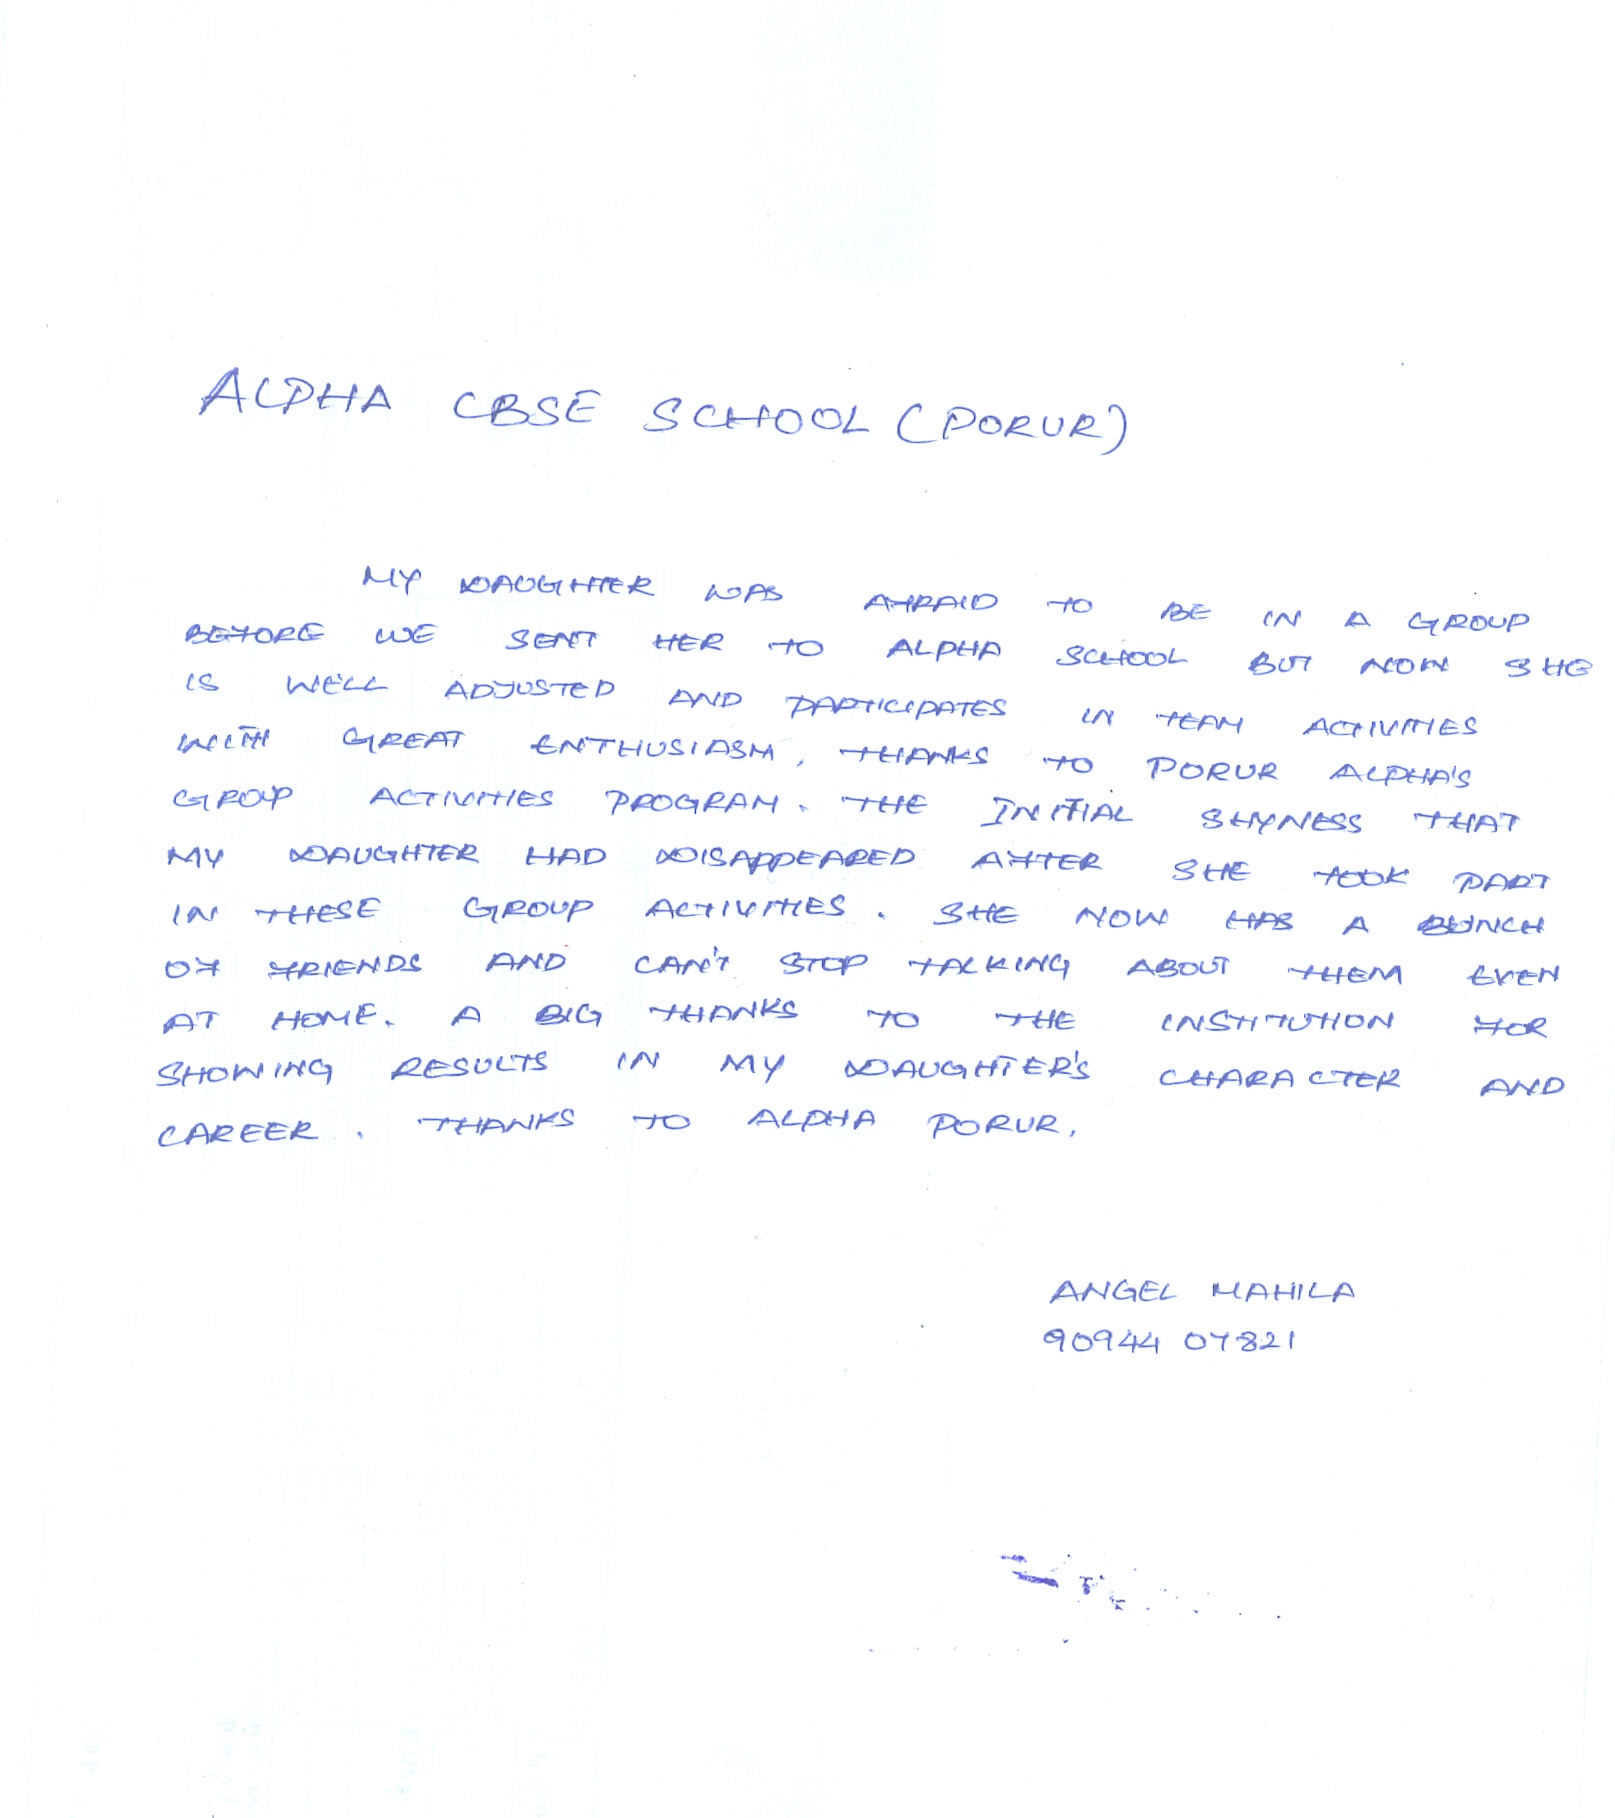 ALPHA CBSE SCHOOL (PORUR)
MY DAUGHTER WAS AFRAID TO BE IN A GROUP
BEFORE WE SENT HER TO ALPHA SCHOOL BUT NOW SHE
IS WELL ADJUSTED AND PARTICIPATES IN TEAM ACTIVITIES
WITH GREAT ENTHUSIASM, THANKS TO PORUR ALPHA'S
GROUP ACTIVITIES PROGRAM. THE INITIAL SHYNESS THAT
MY DAUGHTER HAD DISAPPEARED AFTER SHE TOOK PART
IN THESE GROUP ACTIVITIES. SHE NOW HAS A BUNCH
OF FRIENDS AND CAN'T STOP TALKING ABOUT THEM EVEN
AT HOME. A BIG THANKS TO THE INSTITUTION FOR
SHOWING RESULTS IN MY DAUGHTER'S CHARACTER AND
CAREER. THANKS TO ALPHA PORUR.
ANGEL MAHILA
90944 07821